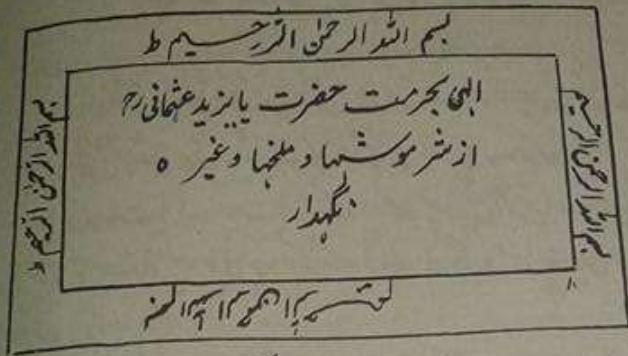 بسم اللہ الرحمٰن الرحیم ط
الہی بحرمت حضرت بایزید عثمانی رح
از شر موشہا و ملخہا وغیر ہ
نگہدار
بسم اللہ الرحمٰن الرحیم
بسم اللہ الرحمٰن الرحیم ط
بسم اللہ الرحمٰن الرحیم